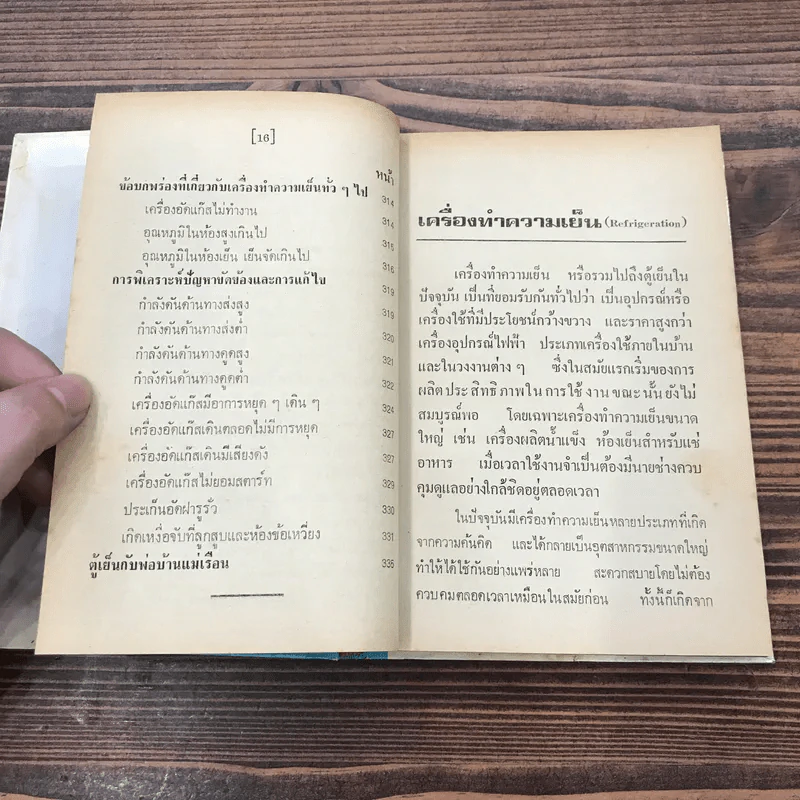 [16]
หน้า
ข้อบกพร่องที่เกี่ยวกับเครื่องทำความเย็นทั่ว ๆ ไป 314
เครื่องอัดแก๊สไม่ทำงาน 314
อุณหภูมิในห้องสูงเกินไป 315
อุณหภูมิในห้องเย็น เย็นจัดเกินไป 316
การพิเคราะห์ปัญหาขัดข้องและการแก้ไข 319
กำลังดันด้านทางส่งสูง 319
กำลังดันด้านทางส่งต่ำ 320
กำลังดันด้านทางดูดสูง 321
กำลังดันด้านทางดูดต่ำ 322
เครื่องอัดแก๊สมีอาการหยุด ๆ เดิน ๆ 324
เครื่องอัดแก๊สเดินตลอดไม่มีการหยุด 327
เครื่องอัดแก๊สเดินมีเสียงดัง 327
เครื่องอัดแก๊สไม่ยอมสตาร์ท 329
ประเก็นอัดฝารูรั่ว 330
เกิดเหงื่อจับที่ลูกสูบและห้องข้อเหวี่ยง 331
ตู้เย็นกับพ่อบ้านแม่เรือน 336
เครื่องทำความเย็น (Refrigeration)
เครื่องทำความเย็น หรือรวมไปถึงตู้เย็นใน
ปัจจุบัน เป็นที่ยอมรับกันทั่วไปว่า เป็นอุปกรณ์หรือ
เครื่องใช้ที่มีประโยชน์กว้างขวาง และราคาสูงกว่า
เครื่องอุปกรณ์ไฟฟ้า ประเภทเครื่องใช้ภายในบ้าน
และในวงงานต่าง ๆ ซึ่งในสมัยแรกเริ่มของการ
ผลิตประสิทธิภาพในการใช้งานขณะนั้นยังไม่
สมบูรณ์พอ โดยเฉพาะเครื่องทำความเย็นขนาด
ใหญ่ เช่น เครื่องผลิตน้ำแข็ง ห้องเย็นสำหรับแช่
อาหาร เมื่อเวลาใช้งานจำเป็นต้องมีนายช่างควบ
คุมดูแลอย่างใกล้ชิดอยู่ตลอดเวลา
ในปัจจุบันมีเครื่องทำความเย็นหลายประเภทที่เกิด
จากความค้นคิด และได้กลายเป็นอุตสาหกรรมขนาดใหญ่
ทำให้ได้ใช้กันอย่างแพร่หลาย สะดวกสบายโดยไม่ต้อง
ควบคุมตลอดเวลาเหมือนในสมัยก่อน ทั้งนี้ก็เกิดจาก